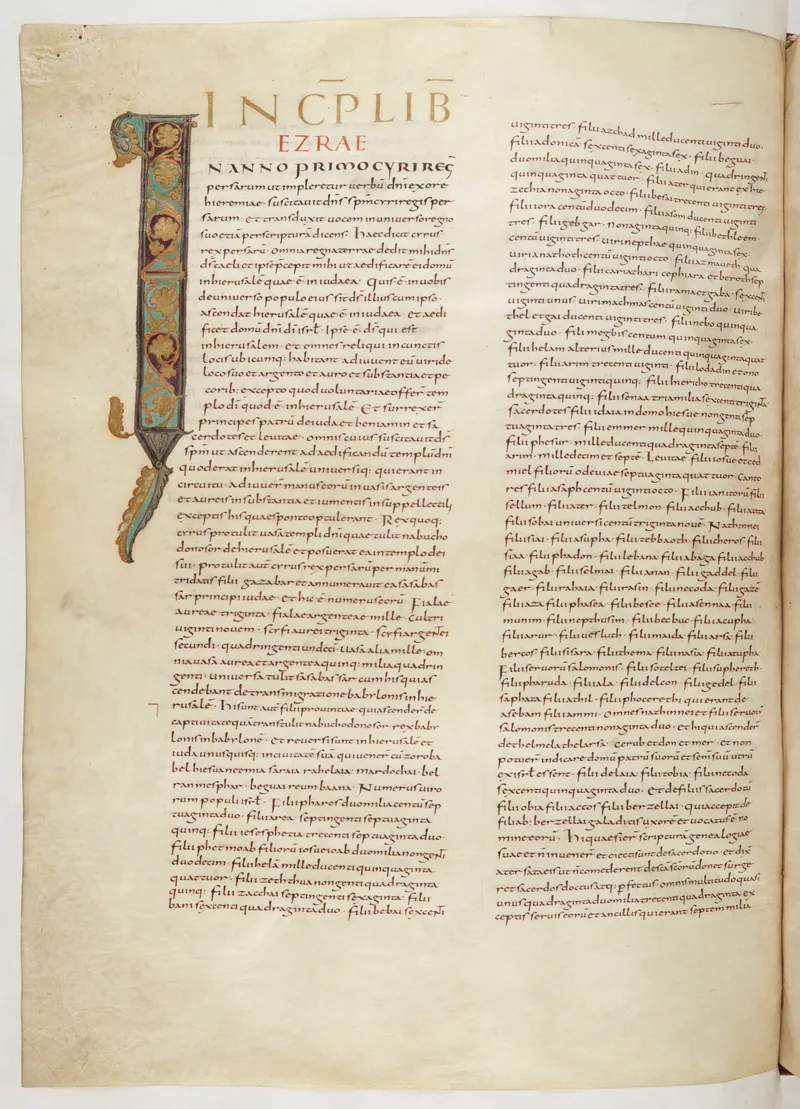 INCP LIB
EZRAE
IN ANNO PRIMO CYRI REG
persarum ut impleretur uerbū dni ex ore
hieremiae · suscitauit dns spm cyri regis per
sarum · et transduxit uocem in uniuerso regno
suo etiā per scripturā dicens · Haec dicit cyrus
rex persarū · omnia regna terrae dedit mihi dns
ds caeli et ipse pcepit mihi ut aedificarē ei domū
in hierusalē quae ē in iudaea · Quis ē in uobis
de uniuerso populo eius sit ds illius cum ipso ·
ascendat hierusalē quae ē in iudaea · et aedi
ficet domū dni di isrł · Ipse ē ds qui est
in hierusalem · et omnes reliqui in cunctis
locis ubicumq: habitant adiuuent eū uiri de
loco suo argento et auro et substantia et pe
corib: excepto quod uoluntariae offerr tem
plo di quod ē in hierusalē Et surrexer
principes patrū de iuda et beniamin et sa
cerdotes et leuitae · omnis cuius suscitauit ds
spm ut ascenderent ad aedificandū templū dni
quod erat in hierusalē uniuersiq: qui erant in
circuitu · adiuuer manus eorū in uasis argenteis
et aureis in substantia et iumentis in suppellectili
exceptis his quae sponte optulerant · Rex quoq:
cyrus protulit uasa templi dni quae tulit nabucho
donosor de hierusalē et posuerat ea in templo dei
sui · protulit aut cyrus rex persarū per manum
tridatis filii gazabar et annumerauit ea sasabas
sar principi iudae · et hic ē numerus eorū · Fialae
aureae triginta · fialae argenteae mille · cultri
uiginti nouem · scyfi aurei triginta · scyfi argentei
secundi · quadringenti undeci · uasa alia mille · om
nia uasa aurea et argentea quinq: milia quadrin
genti · uniuersa tulit sasabassar cum his qui as
cendebant de transmigratione babylonis in hie
rusalē · Hi sunt aut filii prouintiae qui ascender de
captiuitate quā transtulit nabuchodonosor rex baby
lonis in babylonē · et reuersi sunt in hierusalē et
iuda unusquisq: in ciuitatē suā qui uener cū zoroba
bel hiesua neemia saraia rahelaia · mardochai · bel
ran mesphar · beguai reum baana · Numerus uiro
rum populi isrł · Filii pharos duo milia centū sep
tuaginta duo · filii area · septingenti septuaginta
quinq: filii iesephetia trecenti septuaginta duo ·
filii phetmoab filiorū iosue ioab duo milia nongenti
duodecim · filii helā mille ducenti quinquaginta
quattuor · filii zechua nongenti quadraginta
quinq: filii zacchai septingenti sexaginta · filii
bani sexcenti quadraginta duo · filii bebai sexcenti
uiginti tres · filii azchad mille ducenti uiginti duo ·
filii adonica · sexcenti sexaginta sex · filii beguai ·
duo milia quinquaginta sex · filii adin · quadringenti
quinquaginta quattuor · filii ater qui erant ex hie
zechia nonaginta octo · filii besai trecenti uiginti tres ·
filii iora centū duodecim · filii asom ducenti uiginti
tres · filii gebbar · nonaginta quinq: filii bethleem ·
centū uiginti tres · uiri nepthae quinquaginta sex ·
uiri anathoth centū uiginti octo · filii azmaueth qua
draginta duo · filii cariathari cephira et beroth sep
tingenti quadraginta tres · filii rama et gaba · sexcenti
uiginti unus · uiri machmas centū uiginti duo · uiri be
thel et gai ducenti uiginti tres · filii nebo quinqua
ginta duo · filii megbis centum quinquaginta sex ·
filii helam alterius mille ducenti quinquaginta quat
tuor · filii arim trecenti uiginti · filii lod adin et ono
septingenti uiginti quinq: filii hiericho trecenti qua
draginta quinq: filii senaa tria milia sexcenti triginta
sacerdotes filii idaia in domo hiesue nongenti sep
tuaginta tres · filii emmer mille quinquaginta duo ·
filii phesur · mille ducenti quadraginta septē · filii
arim · mille decim et septē · Leuitae filii iosue et ced
miel filiorū odeuiae septuaginta quattuor · Canto
res filii asaph centū uiginti octo · Filii ianitorū filii
sellum · filii ater · filii telmon · filii acchub · filii atita
filii sobai uniuersi centū triginta nouē · Nathinnei
filii siai · filii asupha · filii tebbaoth · filii cheros filii
siaa · filii phadon · filii lebana · filii abaga · filii acchub
filii agab · filii selmai · filii anan · filii gaddel · filii
gaer · filii rahaia · filii rasin · filii necoda · filii gazē
filii aza filii phasea · filii besee · filii asennaa filii
munim · filii nephusim · filii becbuc · filii acupha ·
filii arur · filii uesluch · filii maida · filii arsa · filii
bercos · filii sisara · filii thema · filii nasia · filii atupha
Filii seruorū salomonis · filii sozeltei · filii supheret·
filii pharuda · filii ala · filii delcon · filii gedel · filii
saphata · filii athil · filii phocereth · qui erant de
asebam filii ammi · omnes nathinnei et filii seruorū
salomonis trecenti nonaginta duo · et hi qui ascender
de thelmela thelarsa · cerub et don et mer · et non
potuer indicare domū patrū suorū et semē suū utrū
ex isrł essent · filii delaia · filii tobia · filii necoda
sexcenti quinquaginta duo · Et de filiis sacerdotū
filii obia filii accos filii berzellai · qui accepit de
filiab: berzellai galaditis uxorē et uocatus ē no
mine eorū · Hi quaesier scripturā genealogiae
suae et ñ inuener et eiecti sunt de sacerdotio · et dix
atersata eis ut ñ comederent de sc̄o sc̄orū donec surge
ret sacerdos doctus atq: pfectus · omnis multitudo quasi
unus quadraginta duo milia trecenti quadraginta ex
ceptis seruis eorū et ancillis qui erant septem milia